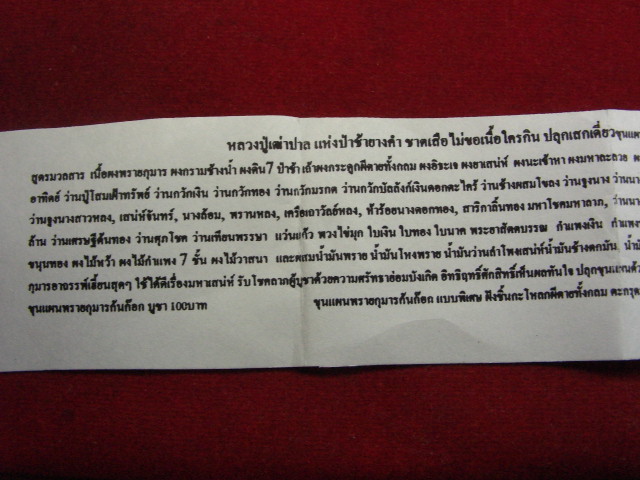 หลวงปู่เฒ่าปาล แห่งป่าช้ายางคำ ชาตเสือไม่ขอเนื้อใครกิน ปลุกเสกเดี่ยวขุนแผน
สูตรมวลสาร เนื้อผงพรายกุมาร ผงกรามช้างน้ำ ผงดิน7 ป่าช้า เถ้าผงกระดูกผีตายทั้งกลม ผงอิธะเจ ผงยาเสน่ห์ ผงนะเข้าหา ผงมหาละลวย
อาทิตย์ ว่านปู่โสมเฝ้าทรัพย์ ว่านกวักเงิน ว่านกวักทอง ว่านกวักมรกต ว่านกวักบัลลังก์เงินดอกตะไคร้ ว่านช้างผสมโขลง ว่านจูงนาง
ว่านจูงนางสาวหลง, เสน่ห์จันทร์, นางล้อม, พรานหลง, เครือเถาวัลย์หลง, ห้าร้อยนางดอกทอง, สาริกาลิ้นทอง มหาโชคมหาลาภ,
ล้าน ว่านเศรษฐีต้นทอง ว่านศุภโชค ว่านเทียนพรรษา แว่นแก้ว พวงไข่มุก ใบเงิน ใบทอง ใบนาค พระอาสัตตบรรณ กำแพงเงิน
ขนุนทอง ผงไม้หว้า ผงไม้กำแพง 7 ชั้น ผงไม้วาสนา และผสมน้ำมันพราย น้ำมันโหงพราย น้ำมันว่านลำโพงเสน่ห์น้ำมันช้างตกมัน
กุมารอาจรรพ์เฮี้ยนสุดๆ ใช้ได้ดีเรื่องมหาเสน่ห์ รับโชคลาภผู้บูชาด้วยความศรัทธาย่อมบังเกิด อิทธิฤทธิ์ศักสิทธิ์เห็นผลทันใจ ปลุกขุนแผนด้วย
ขุนแผนพรายกุมารก้นก๊อก บูชา 100บาท ขุนแผนพรายกุมารก้นก๊อก แบบพิเศษ ฝังชิ้นกะโหลกผีตายทั้งกลม ตะกรุด